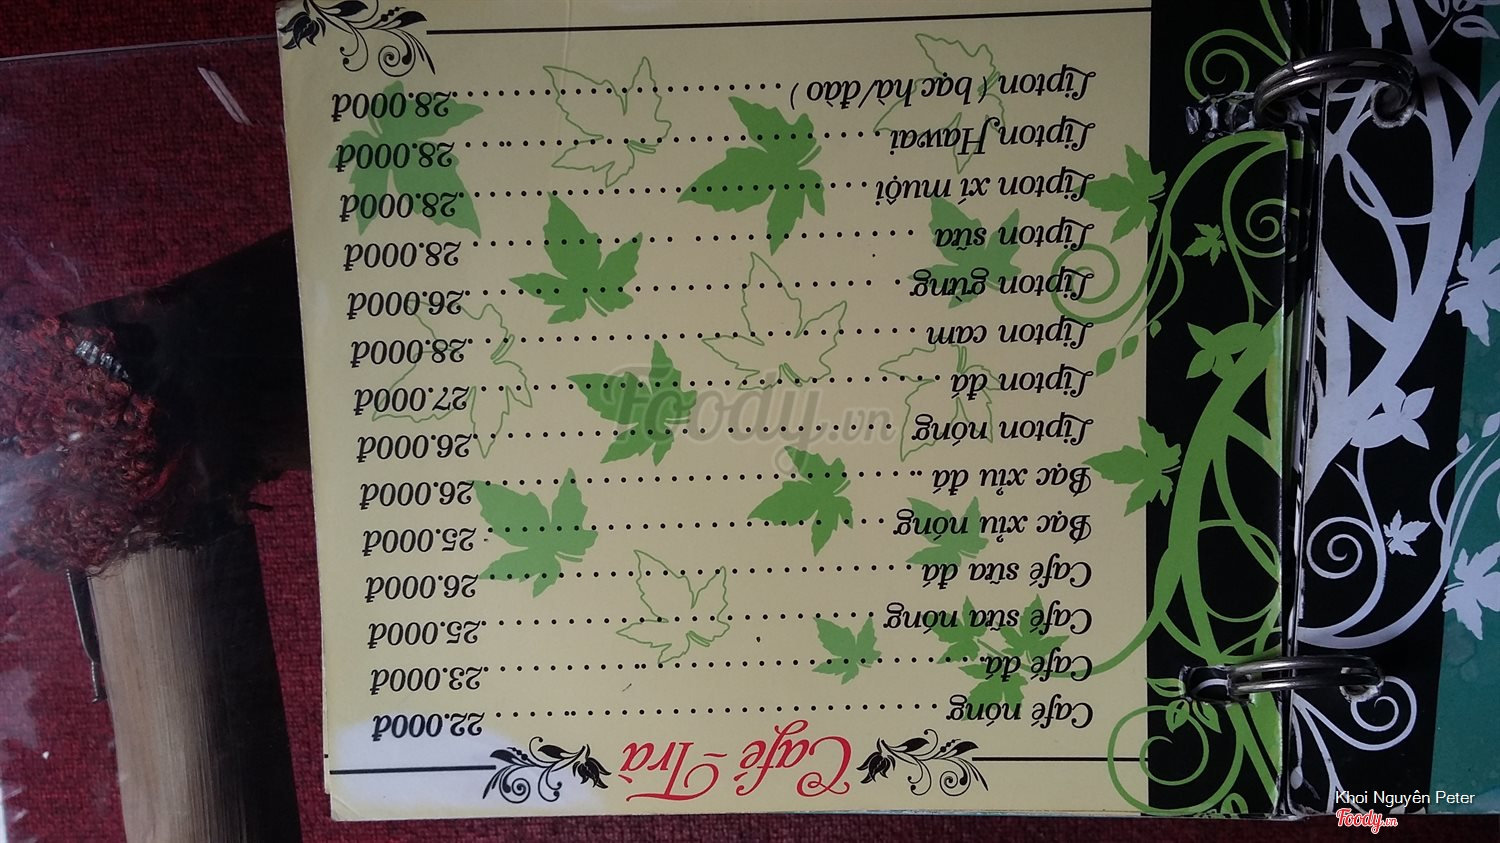 Café - Trà
Café nóng 22.000đ
Café đá 23.000đ
Café sữa nóng 25.000đ
Café sữa đá 26.000đ
Bạc xỉu nóng 25.000đ
Bạc xỉu đá 26.000đ
Lipton nóng 26.000đ
Lipton đá 27.000đ
Lipton cam 28.000đ
Lipton gừng 26.000đ
Lipton sữa 28.000đ
Lipton xí muội 28.000đ
Lipton Hawai 28.000đ
Lipton ( bạc hà/đào ) 28.000đ
Foody.vn
Khoi Nguyên Peter
Foody.vn